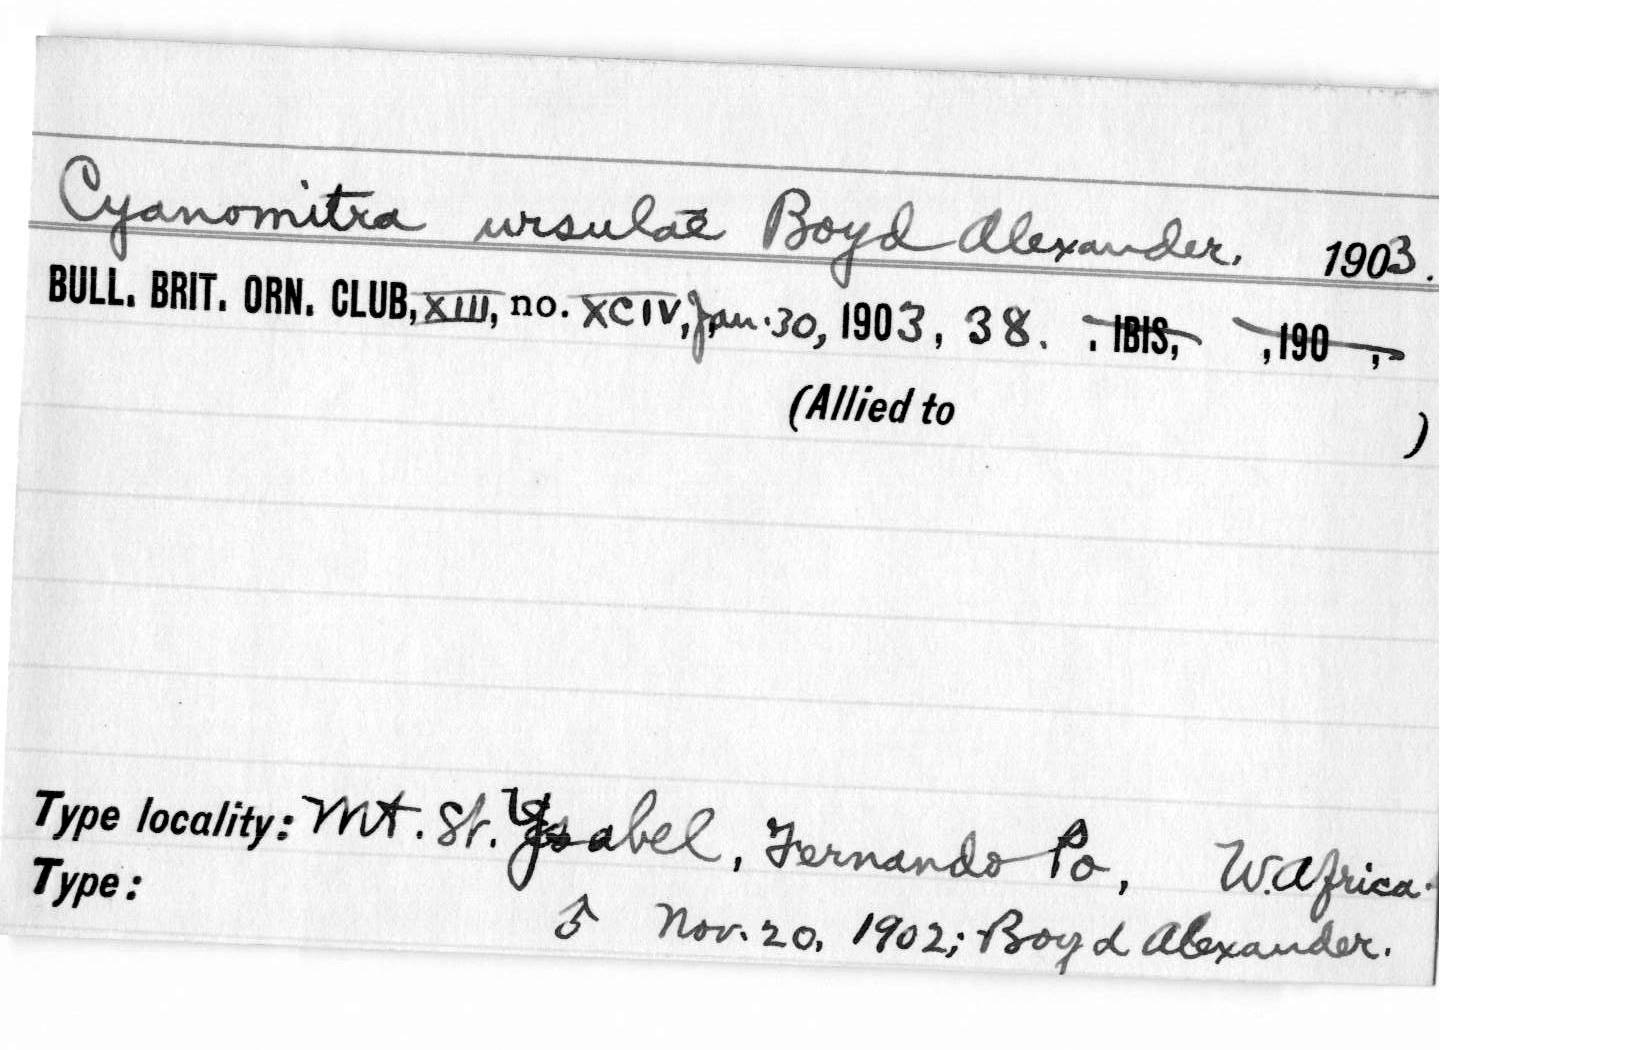 Cyanomitra ursulae Boyd Alexander. 1903.
BULL. BRIT. ORN. CLUB, XIII, no. XCIV, Jan. 30, 1903, 38. . IBIS, , 190 ,
(Allied to )
Type locality: Mt. St. Ysabel, Fernando Po, W. Africa.
Type:
♂ Nov. 20, 1902; Boyd Alexander.